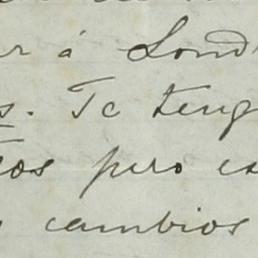 ar á Lond
s. Te teng
tos pero es
cambios